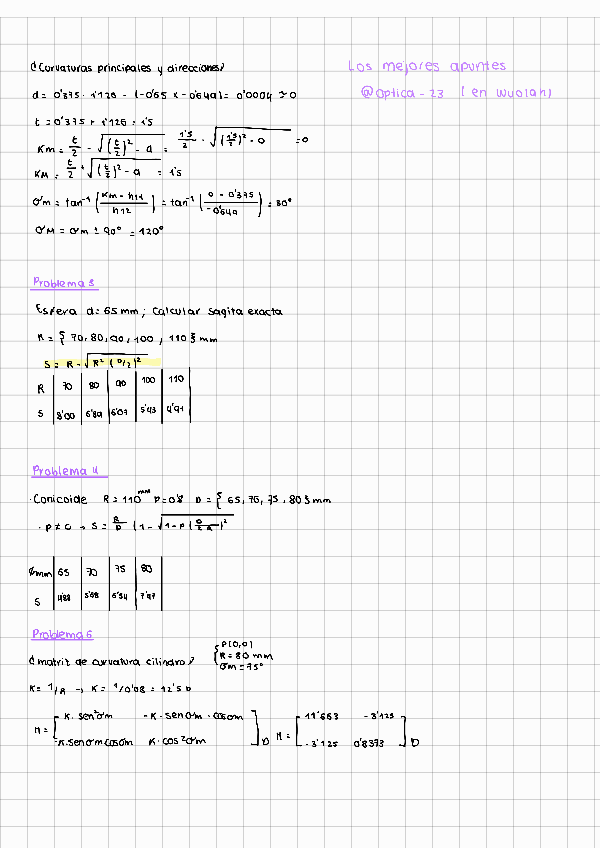 ¿Curvaturas principales y direcciones?
Los mejores apuntes
@Optica-23 (en wuolah)
d = 0'375 · 1'126 - (-0'65 × -0'649) = 0'0004 ≈ 0
t = 0'375 + 1'126 = 1'5
Km = t/2 - √((t/2)² - d) = 1'5/2 - √((1'5/2)² - 0) = 0
KM = t/2 + √((t/2)² - d) = 1'5
σm = tan⁻¹ (Km - h11 / h12) = tan⁻¹ (0 - 0'375 / -0'649) = 30°
σM = σm ± 90° = 120°
Problema 3
Esfera d = 65 mm; Calcular sagita exacta
R = { 70, 80, 90, 100, 110 } mm
S = R - √R² (D/2)²
R 70 80 90 100 110
S 8'00 6'89 6'07 5'43 4'91
Problema 4
· Conicoide R = 110 mm P = 0'8 D = { 65, 70, 75, 80 } mm
· P ≠ 0 → S = R/P (1 - √1 - P (D/2R)²
Ømm 65 70 75 80
S 4'88 5'68 6'54 7'47
Problema 6
¿matriz de curvatura cilindro? { P(0,0) R = 80 mm σm = 75°
K = 1/R → K = 1/0'08 = 12'5 D
M = [ K · sen²σm - K · sen σm · cos σm
- K · sen σm cos σm K · cos²σm ] D M = [ 11'663 - 3'125
- 3'125 0'8373 ] D